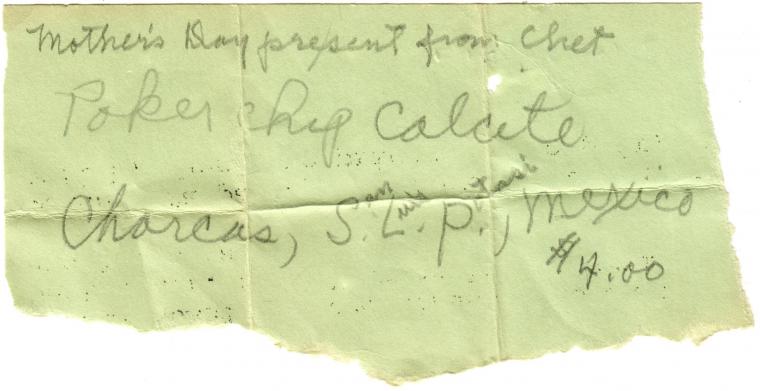 Mother's Day present from Chet
Poker chip Calcite
Charcas, San Luis Potosi, Mexico
$4.00